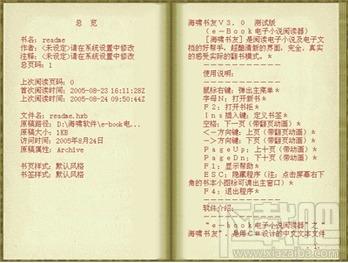 总 览
书名: readme
作者: (未设定)请在系统设置中修改
注释: (未设定)请在系统设置中修改
总页码: 1
上次阅读页码: 0
首次阅读时间: 2005-08-23 16:11:28Z
上次阅读时间: 2005-08-24 09:50:44Z
文件名: readme.hxb
原稿路径: D:\海啸软件\e-book电...
原稿大小: 1KB
访问时间: 2005年8月24日
原稿属性: Archive
书页样式: 默认风格
书签样式: 默认风格
海啸书友V3.0 测试版
(e-Book电子小说阅读器)
[海啸书友]是阅读电子小说及电子文
档的好帮手，超酷清晰的界面，完全、真实
的感受实际的翻书模式。*
使用说明:
鼠标右键: 弹出主菜单*
字母N: 打开新书*
F2: 打开书柜*
Ins插入键: 定义书签*
空格: 下一页(带翻页动画)*
<-方向键: 上页(带翻页动画)*
->方向键: 下页(带翻页动画)*
PageUp: 上十页(带动画)*
PageDn: 下十页(带动画)*
F1: 显示帮助*
ESC: 隐藏程序(注: 点击屏幕右下
角的书本小图标可调出主窗口)*
F4: 退出程序*
软件介绍:
"e-Book电子小说阅读器"之
下载吧
www.xiazaiba.com